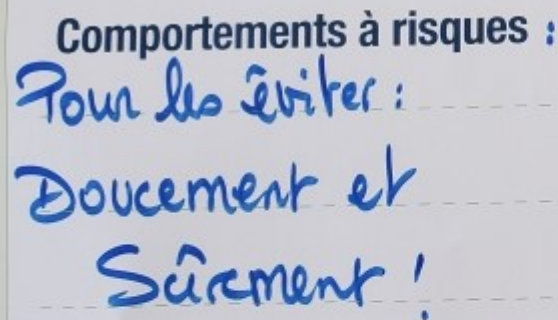 Comportements à risques :
Pour les êviter :
Doucement et
Sûrement !